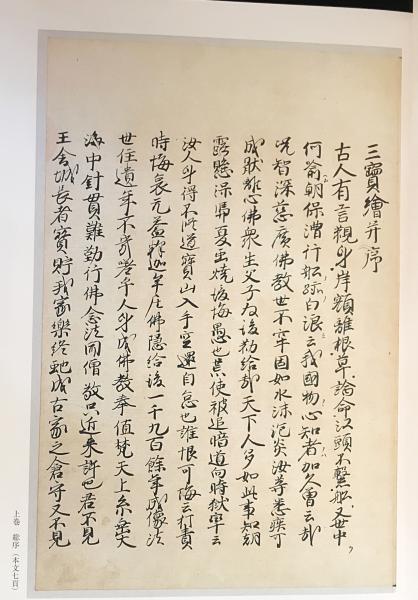 三寶繪并序
古人有言觀身岸額離根草論命江頭不繫舩又世中
何喩朝保漕行舩跡白浪云我國物心知者加久曽云哉
况智深慈廣佛教世不牢固如水沫泡炎汝等悉疾可
成猒離心佛衆生父子为後勅給哉天下人多如此事知朝
露懸深歸夏虫燒後悔愚也業使被追暗道向時獄卒云
汝人身得不修道寶山入手空還自怠也誰恨可悔云打責
時悔哀元益釋迦牟尼佛隱給後一千九百餘年成像法
世住遺年不㡬若于人身成佛教奉值梵天上糸垂大
海中針貫難勤行佛念法聞僧敬只近来許也君不見
王舍城長者寶貯我家樂終虵成古家之倉守又不見
上巻 総序（本文七頁）